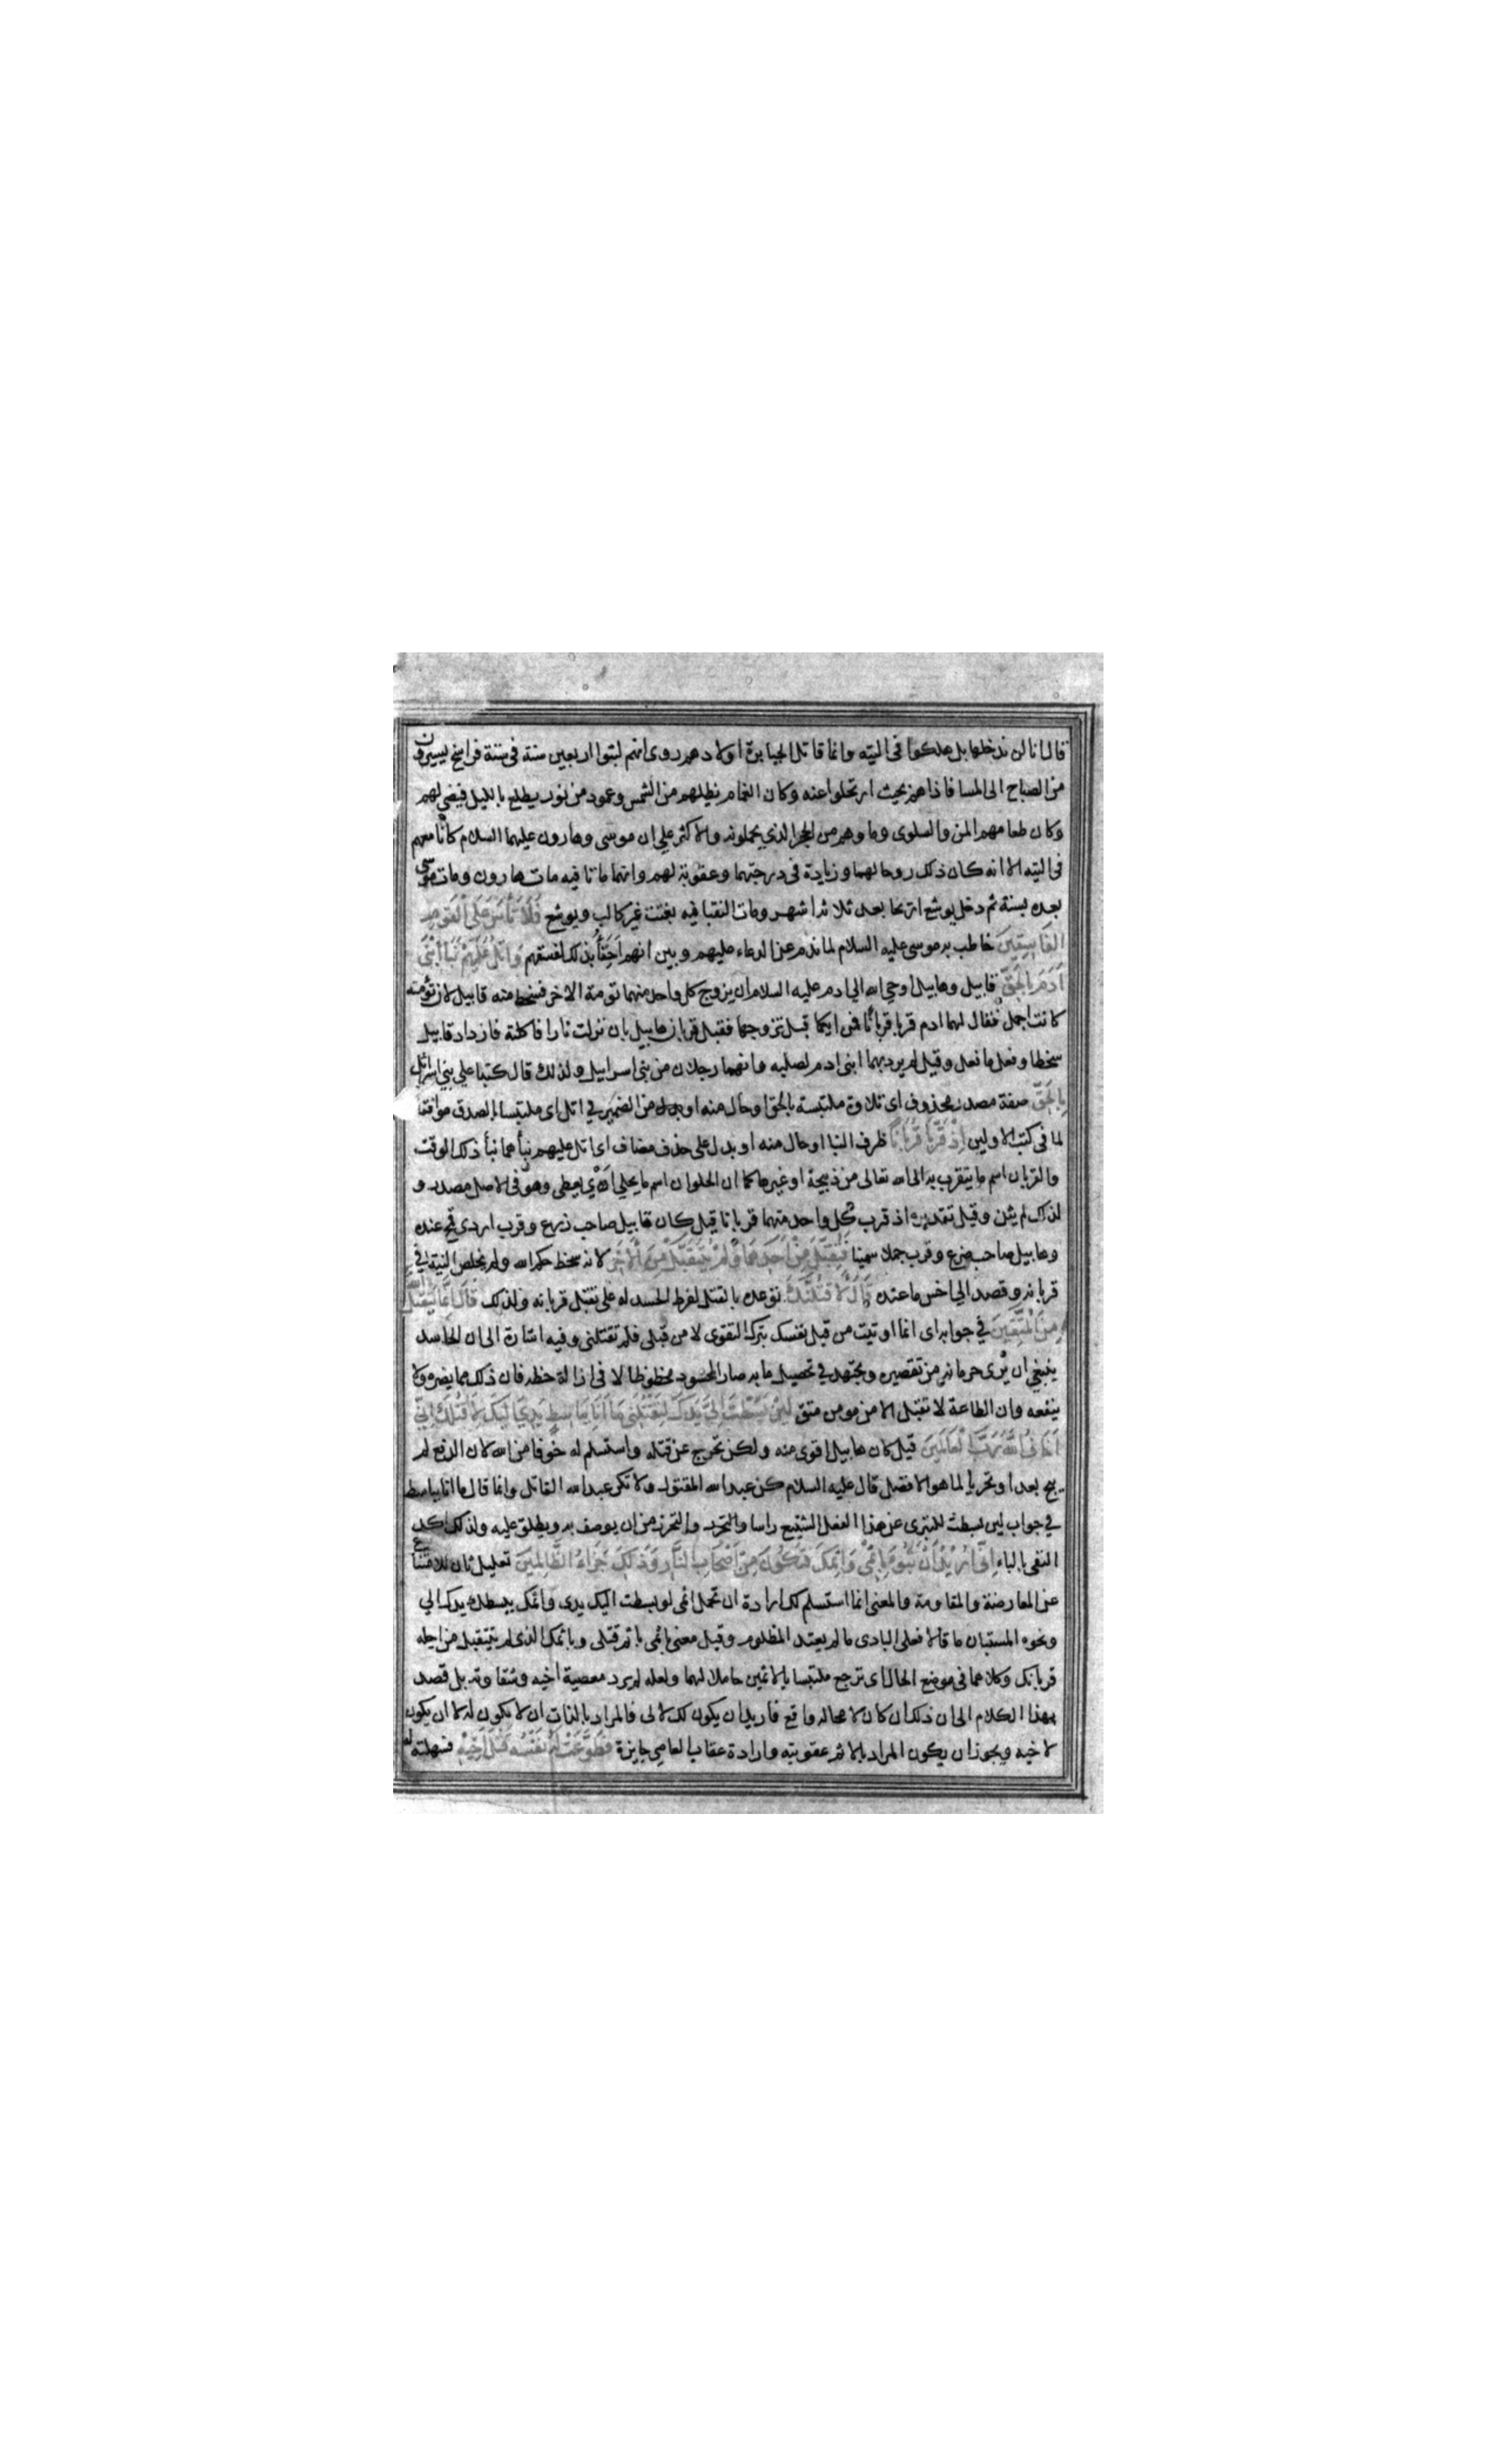 قال انا لن ندخلها بل هلكوا فى التيه وانما قاتل الجبابرة اولادهم روى انهم لبثوا اربعين سنة فى ستة فراسخ يسيرون
من الصباح الى المسا فاذا هم بحيث ارتحلوا عنه وكان الغمام يظلهم من الشمس وعمود من نور يطلع بالليل فيضى لهم
وكان طعامهم المن والسلوى وماوهم من الحجر الذي يحملونه والاكثر على ان موسى وهارون عليهما السلام كانا معهم
فى التيه الا انه كان ذلك روحا لهما وزيادة فى درجتهما وعقوبة لهم وانهما ماتا فيه مات هارون ومات موسى
بعده بسنة ثم دخل يوشع اريحا بعد ثلاثة اشهر ومات النقبا فيه بغتت غير كالب ويوشع فَلَا تَأْسَ عَلَى الْقَوْمِ
الفَاسِقِينَ خاطب به موسى عليه السلام لما ندم عن الدعاء عليهم وبين انهم احقاُ بذلك لفسقهم وَاتْلُ عَلَيْهِمْ نَبَأَ ابْنَىْ
آدَمَ بِالْحَقِّ قابيل وهابيل اوحى الله الى ادم عليه السلام ان يزوج كل واحد منهما تومة الاخر فسخط منه قابيل لان تؤمته
كانت اجمل فقال لهما ادم قربا قربانًا فمن ايكما قبل تزوجها فقبل قربان هابيل بان نزلت نارا فاكلته فازداد قابيل
سخطا وفعل ما فعل وقيل لم يرد بهما ابنى ادم لصلبه وانهما رجلان من بنى اسراييل ولذلك قال كتبنا على بني اسرائل
بِالْحَقِّ صفة مصدر محذوف اى تلاوة ملتبسة بالحق او حال منه او بدل من الضمير في اتل اى ملتبسا بالصدق موافقا
لما فى كتب الاولين اِذْ قَرَّبَا قُرْبَانًا ظرف النبا او حال منه او بدل على حذف مضاف اى اتل عليهم نبأهما نبأ ذلك الوقت
والقربان اسم ما يتقرب به الى الله تعالى من ذبيحة او غيرها كما ان الحلوان اسم ما يحلى اى يعطى وهو فى الاصل مصدر و
لذلك لم يثن وقيل تقديره اذ قرب كل واحد منهما قربانا قيل كان قابيل صاحب زرع وقرب اردى قمح عنده
وهابيل صاحب ضرع وقرب جملا سمينا فَتُقُبِّلَ مِنْ اَحَدِهِمَا وَلَمْ يُتَقَبَّلْ مِنَ الْآخَرِ لانه سخط حكم الله ولم يخلص النية في
قربانه وقصد الى اخس ما عنده قَالَ لَاَقْتُلَنَّكَ توعده بالقتل لفرط الحسد له على تقبل قربانه ولذلك قَالَ اِنَّمَا يَتَقَبَّلُ اللّٰهُ
مِنَ الْمُتَّقِينَ في جوابه اى انما اوتيت من قبل نفسك بترك التقوى لا من قبلى فلم تقتلنى وفيه اشارة الى ان الحاسد
ينبغي ان يُرى حرمانه من تقصيره ويجتهد في تحصيل ما به صار المحسود محظوظا لا فى ازالة حظه فان ذلك مما يضره ولا
ينفعه وان الطاعة لا تقبل الا من مومن متق لَئِنْ بَسَطْتَ اِلَىَّ يَدَكَ لِتَقْتُلَنِى مَا اَنَا بِبَاسِطٍ يَدِىَ اِلَيْكَ لِاَقْتُلَكَ اِنِّى
اَخَافُ اللّٰهَ رَبَّ الْعَالَمِينَ قيل كان هابيل اقوى منه ولكن تحرج عن قتله واستسلم له خوفا من الله لان الدفع لم
يبح بعد او تحريا لما هو الافضل قال عليه السلام كن عبد الله المقتول ولا تكن عبد الله القاتل وانما قال ما انا بباسط
في جواب لين بسطت للتبرى عن هذا الفعل الشنيع راسا والتحرز من ان يوصف به ويطلق عليه ولذلك اكد
النفى بالباء اِنِّى اُرِيدُ اَنْ تَبُوءَ بِاِثْمِى وَاِثْمِكَ فَتَكُونَ مِنْ اَصْحَابِ النَّارِ وَذٰلِكَ جَزَاءُ الظَّالِمِينَ تعليل ثان للامتناع
عن المعارضة والمقاومة والمعنى انما استسلم لك ارادة ان تحمل اثمى لو بسطت اليك يدى واثمك ببسطك يدك الي
ونحوه المستبان ما قالا فعلى البادى ما لم يعتد المظلوم وقيل معنى باثمى باثم قتلى وباثمك الذى لم يتقبل من اجله
قربانك وكلاهما فى موضع الحال اى ترجع ملتبسا بالاثمين حاملا لهما ولعله لم يرد معصية اخيه وشقاوته بل قصد
بهذا الكلام الى ان ذلك ان كان لا محاله واقع فاريد ان يكون لك لا لى فالمراد بالذات ان لا يكون له لا ان يكون
لاخيه ويجوز ان يكون المراد بالاثم عقوبته وارادة عقاب العاصى جايزة فَطَوَّعَتْ لَهُ نَفْسُهُ قَتْلَ اَخِيهِ فسهلته له